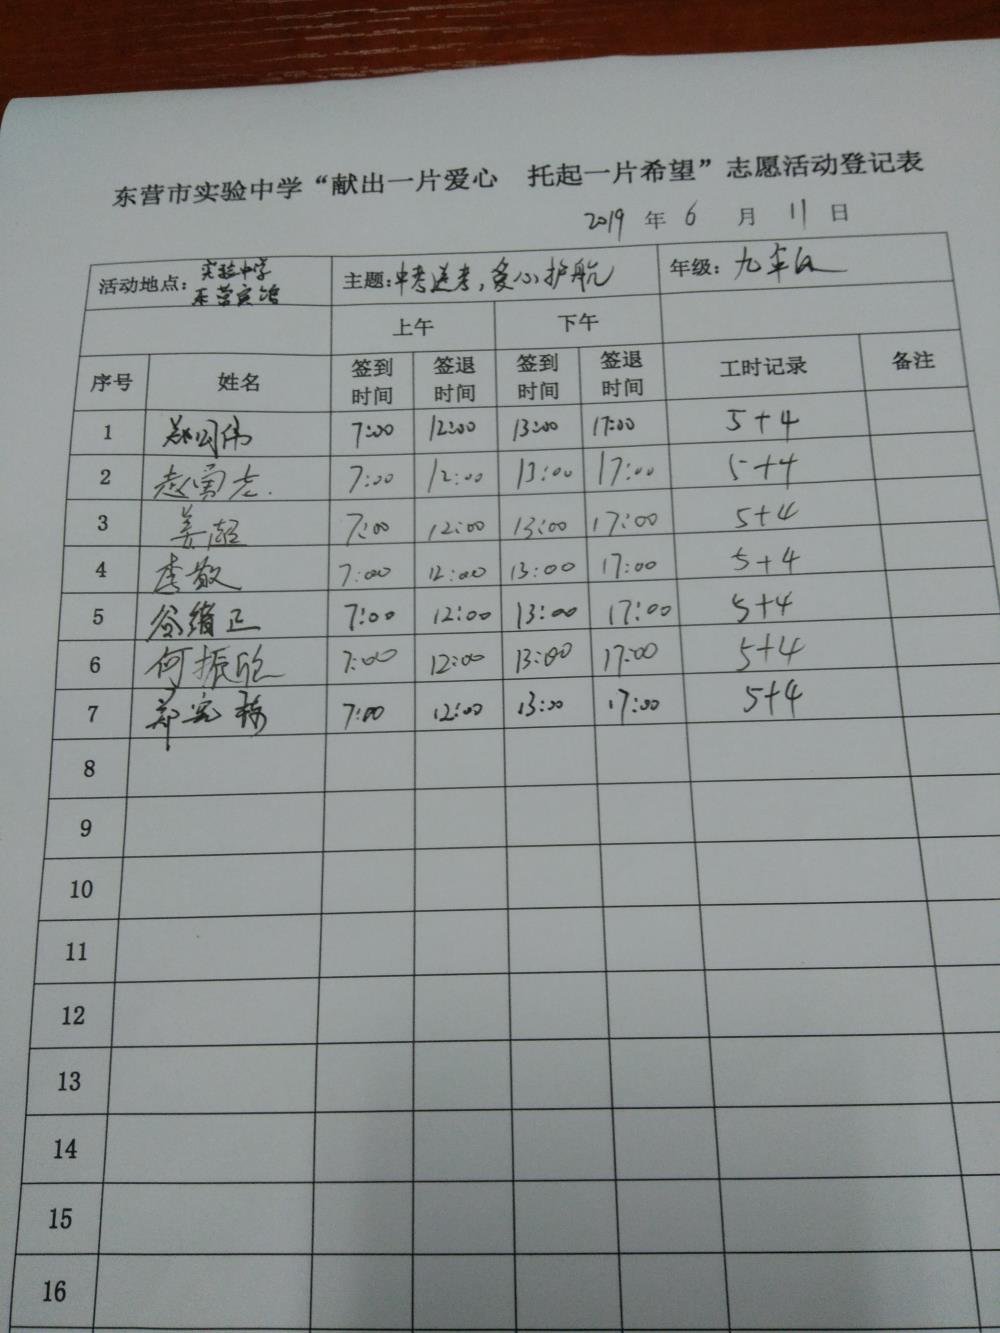 东营市实验中学“献出一片爱心 托起一片希望”志愿活动登记表
2019 年 6 月 11 日
活动地点: 实验中学 东营宾馆 主题: 中考送考,爱心护航 年级: 九年级
上午 下午
序号 姓名 签到时间 签退时间 签到时间 签退时间 工时记录 备注
1 郑国伟 7:00 12:00 13:00 17:00 5+4
2 7:00 12:00 13:00 17:00 5+4
3 姜超 7:00 12:00 13:00 17:00 5+4
4 李敬 7:00 12:00 13:00 17:00 5+4
5 谷绪正 7:00 12:00 13:00 17:00 5+4
6 何振欣 7:00 12:00 13:00 17:00 5+4
7 7:00 12:00 13:00 17:00 5+4
8
9
10
11
12
13
14
15
16